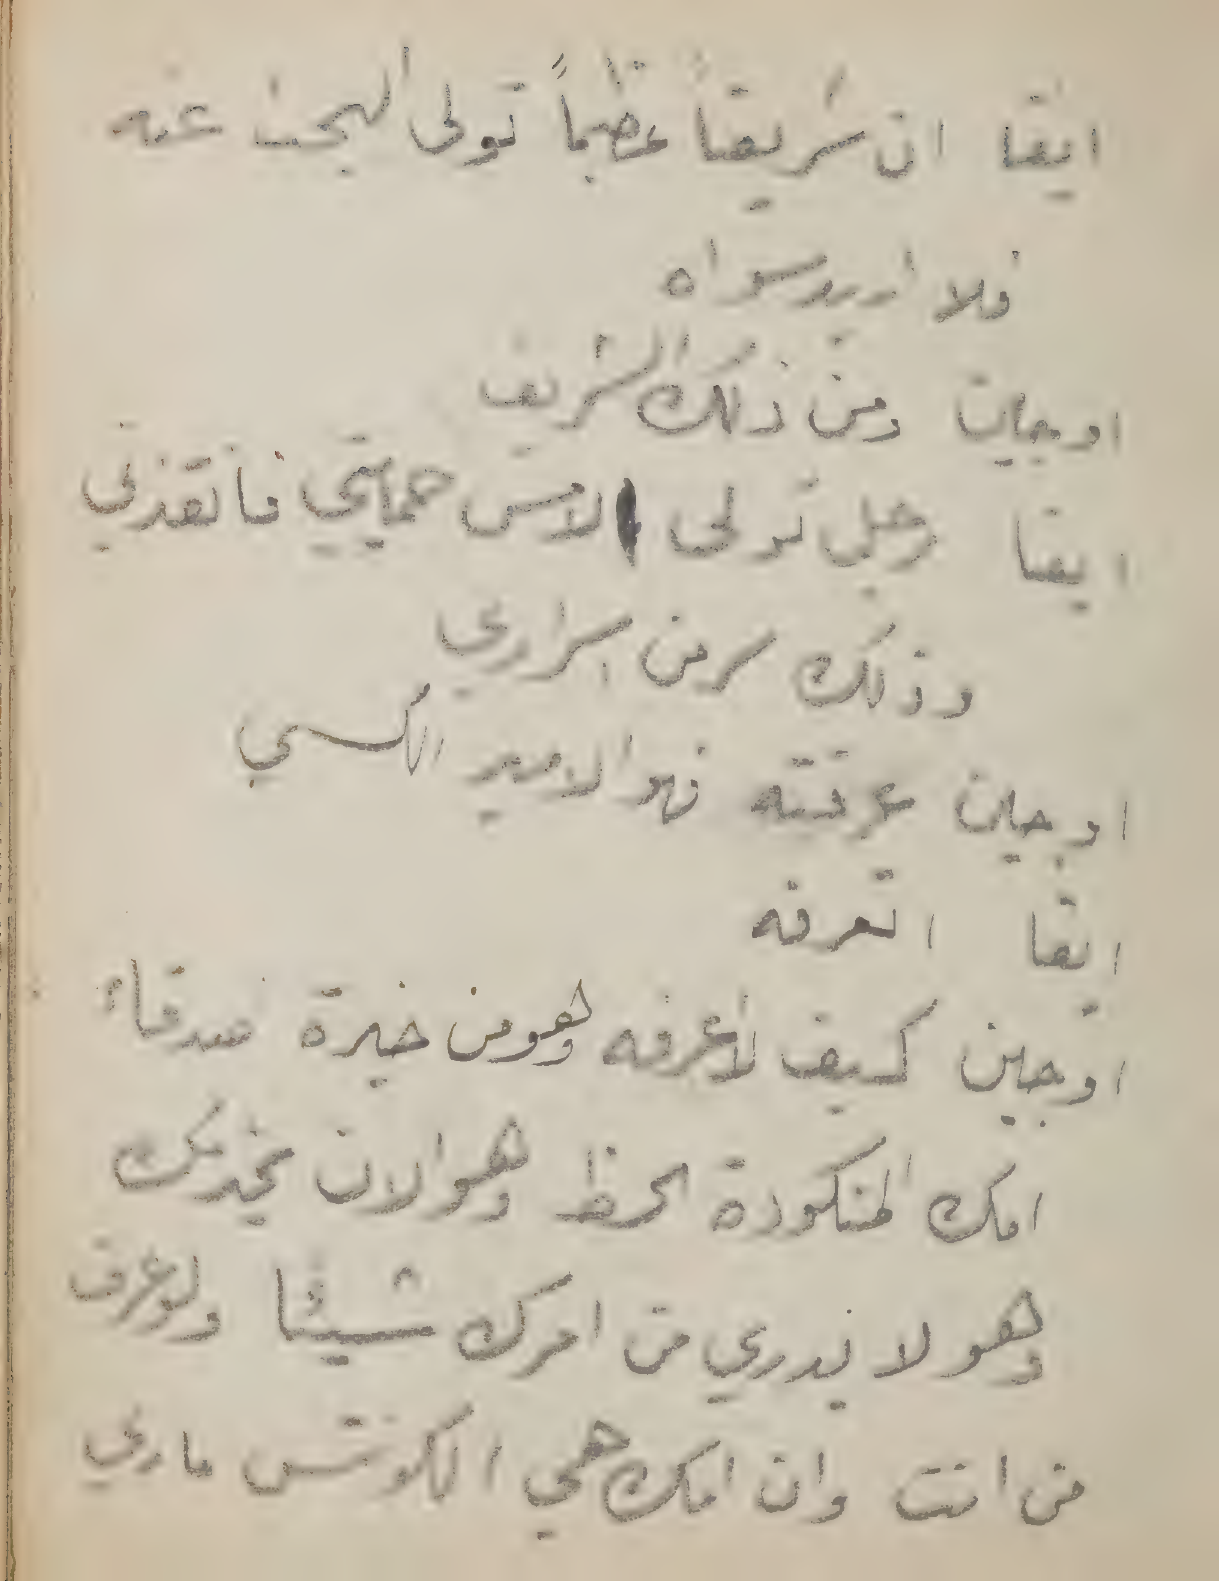 ايقا ان شريفاً عظيماً تولى البحث عنه
فلا اريد سواه
اوجين ومن ذلك الشريف
ايقا رجل تولى الامس حمايتي فانقذني
وذلك سر من اسراري
اوجين عرفته فهو الامير الكسي
ايقا اتعرفه
اوجين كيف لا اعرفه وهو من خيرة اصدقاء
امك المنكودة الحظ وهو الان يخدمك
وهو لا يدري من امرك شيئا ولو عرف
من انت وان امك هي الكونتس ماري